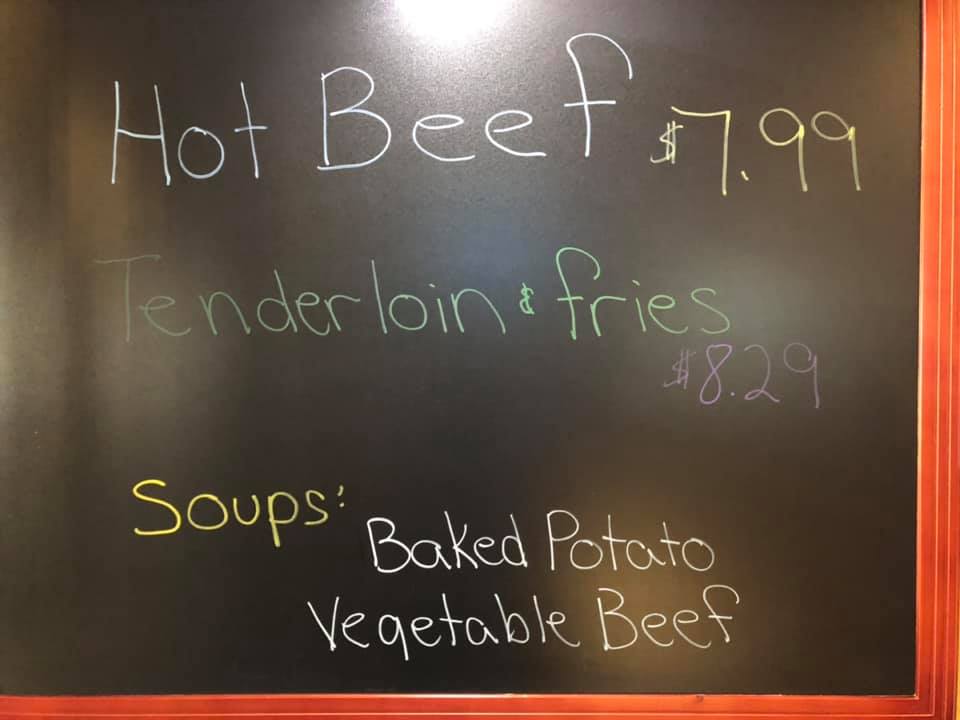 Hot Beef $7.99
Tenderloin & fries
$8.29
Soups:
Baked Potato
Vegetable Beef